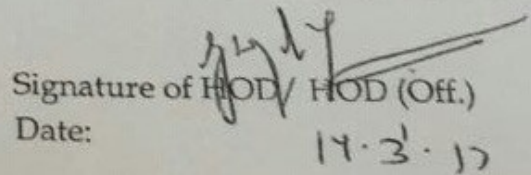 Signature of HOD/ HOD (Off.)
Date: 14.3.17